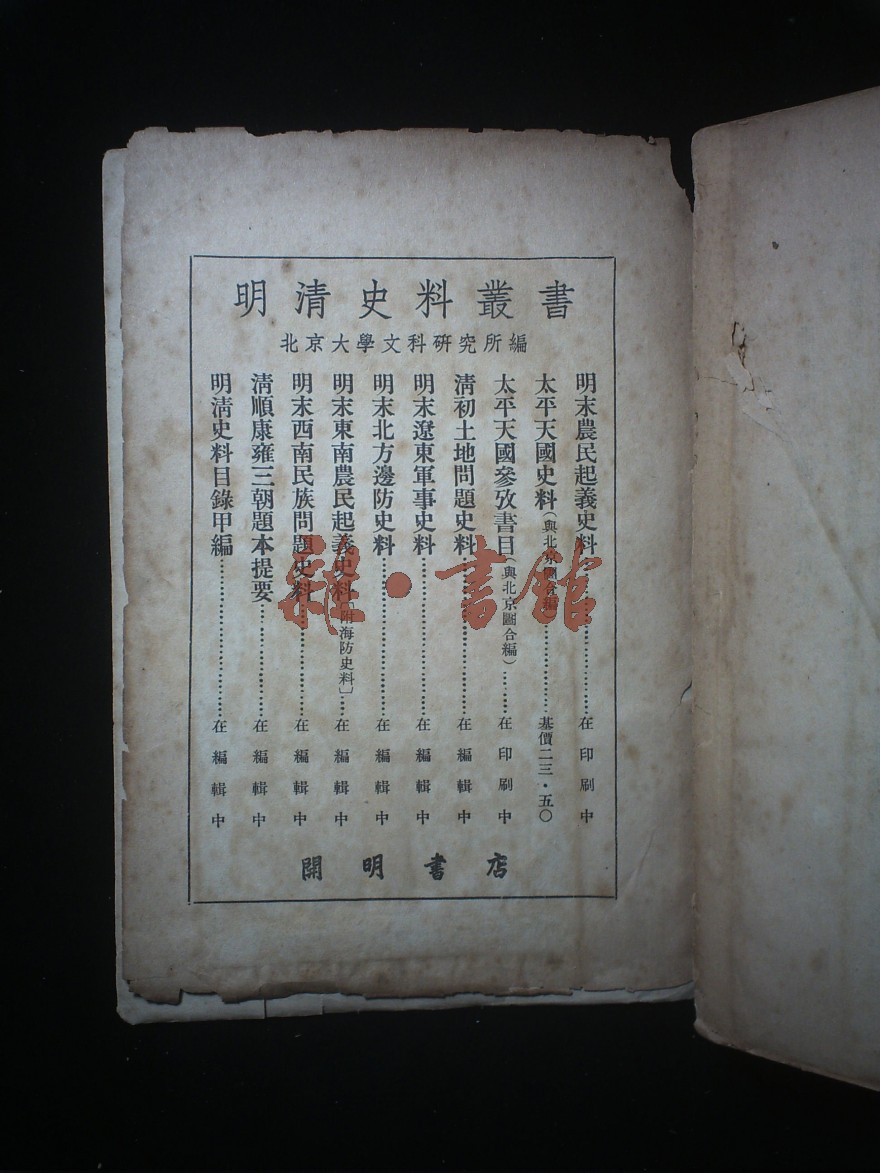 明清史料叢書
北京大學文科硏究所編
明末農民起義史料…………………在印刷中
太平天國史料(與北京圖合編)…………基價二三·五〇
太平天國參攷書目(與北京圖合編)……在印刷中
清初土地問題史料…………………在編輯中
明末遼東軍事史料…………………在編輯中
明末北方邊防史料…………………在編輯中
明末東南農民起義史料〔附海防史料〕……在編輯中
明末西南民族問題史料………………在編輯中
清順康雍三朝題本提要………………在編輯中
明清史料目錄甲編…………………在編輯中
開明書店
雜·書館